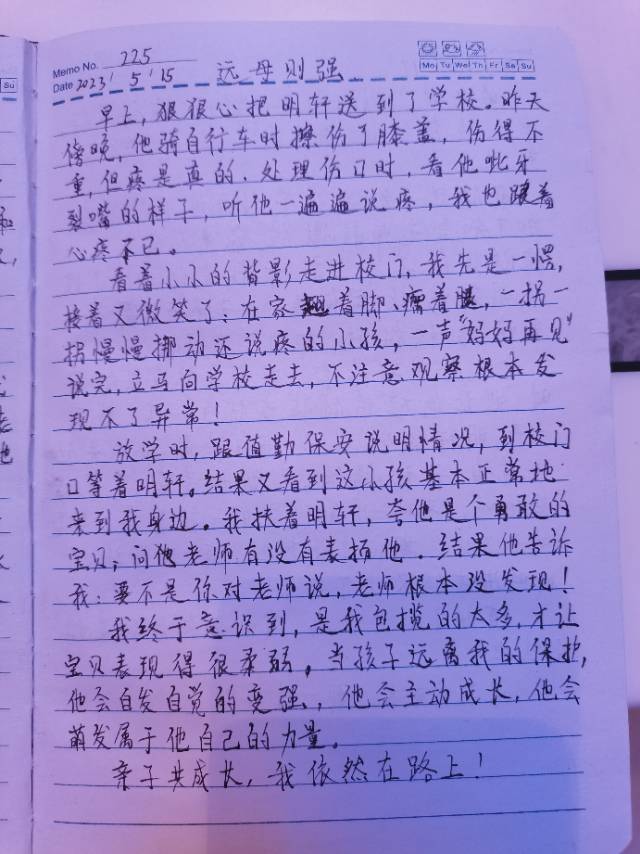 Memo No. 225
Mo Tu We Th Fr Sa Su
Date 2023' 5' 15
远母则强
早上，狠狠心把明轩送到了学校。昨天
傍晚，他骑自行车时擦伤了膝盖，伤得不
重，但疼是真的。处理伤口时，看他呲牙
裂嘴的样子，听他一遍遍说疼，我也跟着
心疼不已。
看着小小的背影走进校门，我先是一愣，
接着又微笑了：在家翘着脚、瘸着腿，一拐一
拐慢慢挪动还说疼的小孩，一声“妈妈再见”
说完，立马向学校走去，不注意观察根本发
现不了异常！
放学时，跟值勤保安说明情况，到校门
口等着明轩。结果又看到这小孩基本正常地
来到我身边。我扶着明轩，夸他是个勇敢的
宝贝，问他老师有没有表扬他。结果他告诉
我：要不是你对老师说，老师根本没发现！
我终于意识到，是我包揽的太多，才让
宝贝表现得很柔弱。当孩子远离我的保护，
他会自发自觉的变强，他会主动成长，他会
萌发属于他自己的力量。
亲子共成长，我依然在路上！
Su